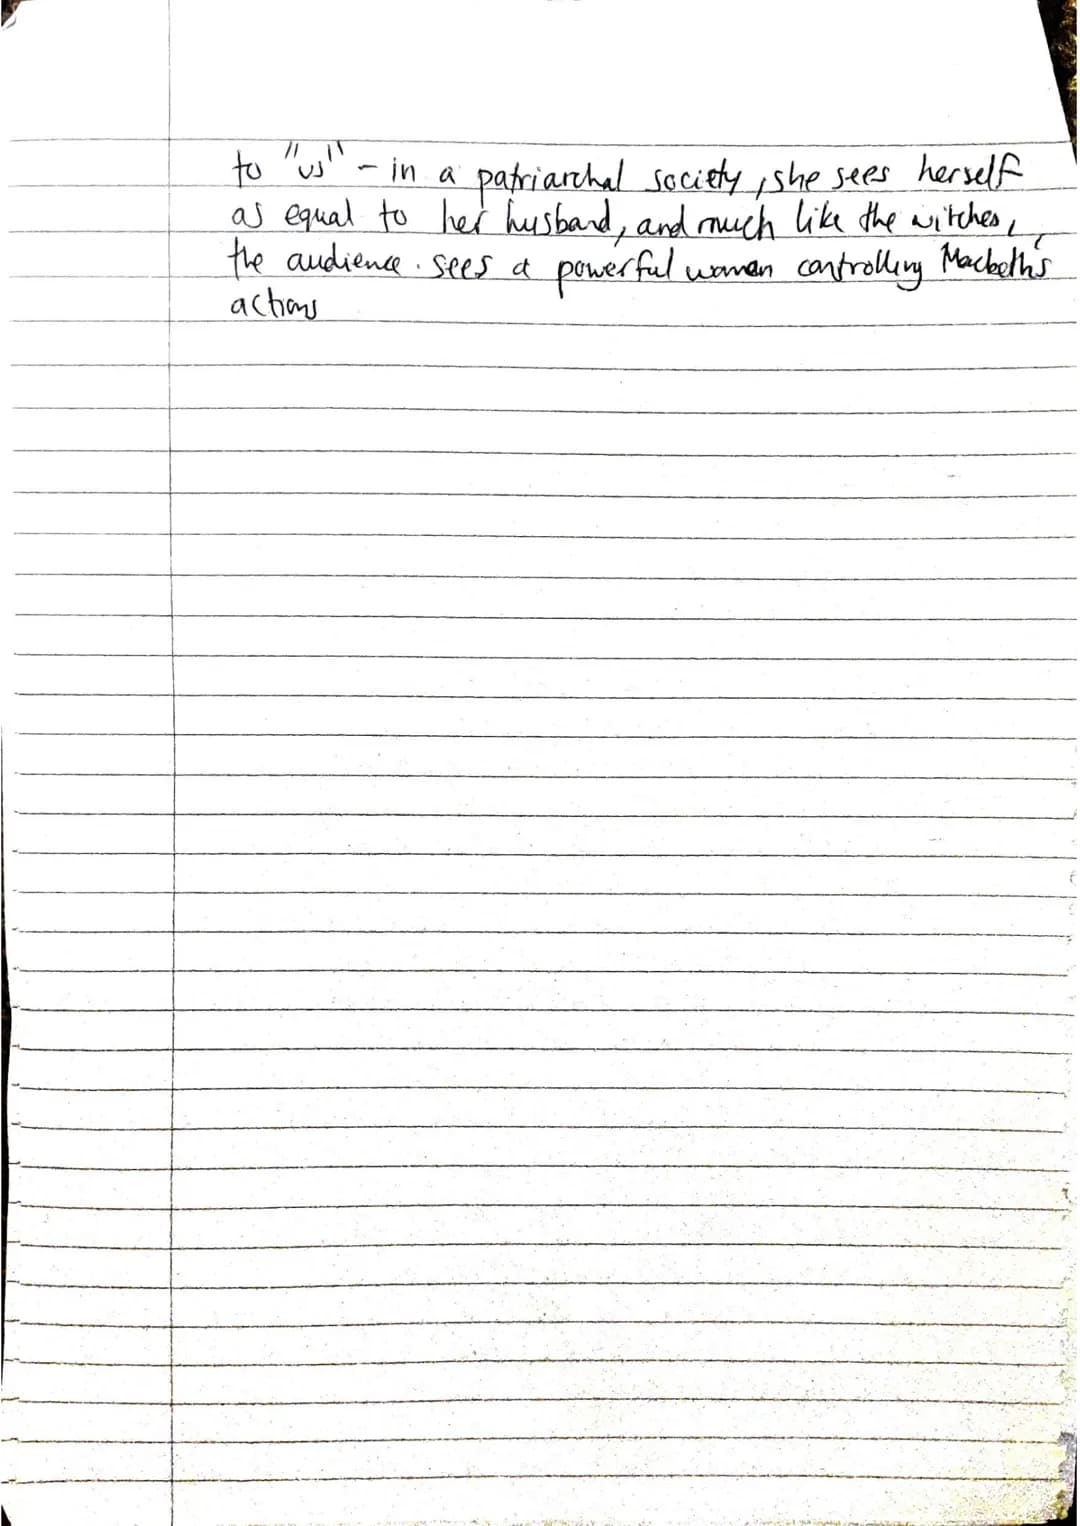 to "us" - in a patriarchal society, she sees herself
as equal to her husband, and much like the witches,
the audience. sees a powerful woman controlling Macbeth's
actions